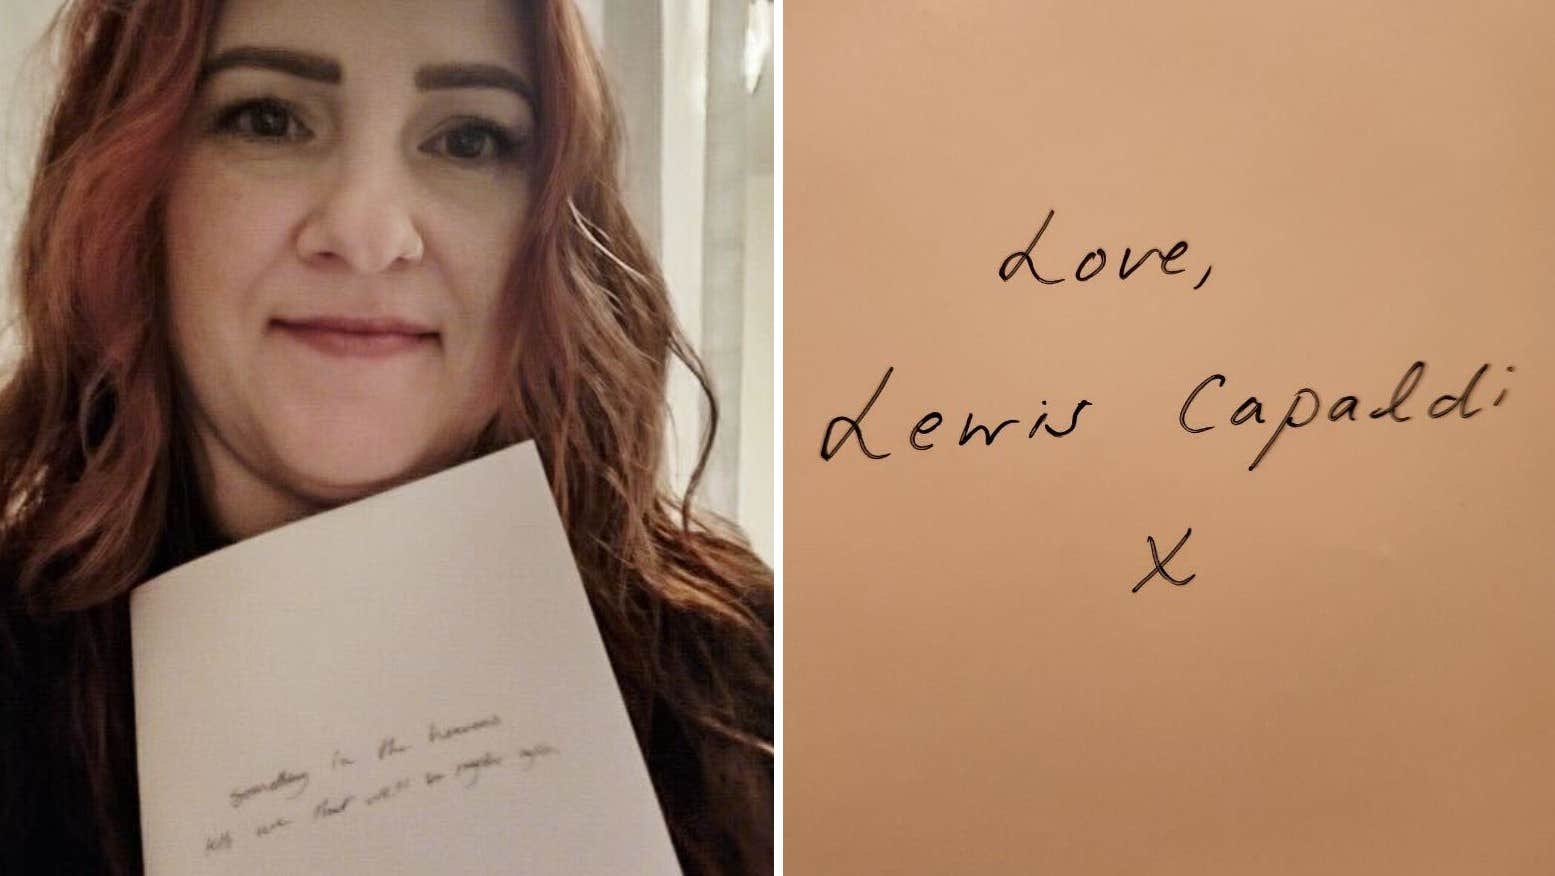 something in the heavens
tells me that we'll be together again
Love,
Lewis Capaldi
X